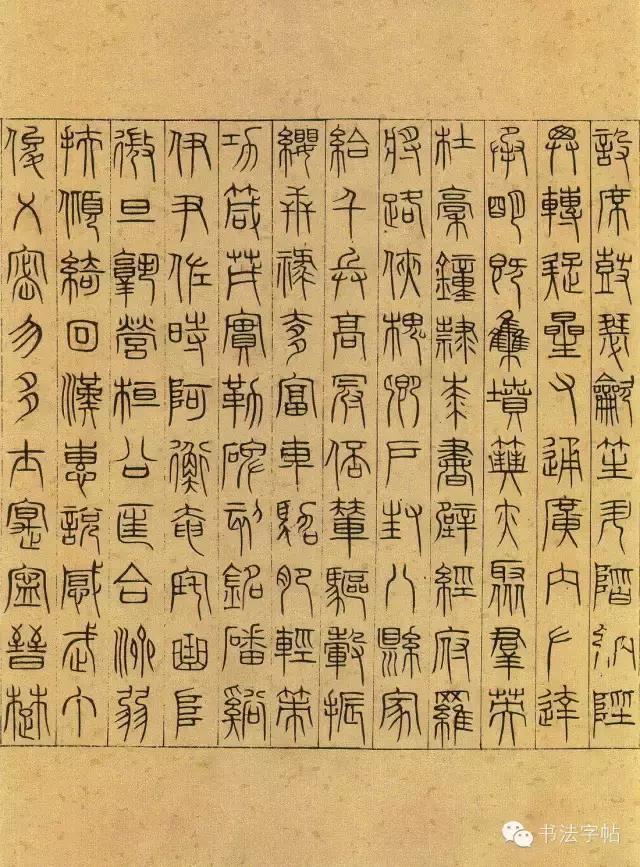 設席鼓瑟龡笙升階納陛
弁轉疑星右通廣內左達
承明既集墳亦聚群英
杜稾鐘隸漆書壁經府羅
將路俠槐卿戶封八縣家
給千兵高冠陪輦驅轂振
纓世祿侈富車駕肥輕策
功茂實勒碑刻銘磻谿
伊尹佐時阿衡奄宅曲阜
微旦孰營桓公匡合濟弱
扶傾綺回漢惠說感武丁
俊乂密勿多士寔寧晉楚
书法字帖